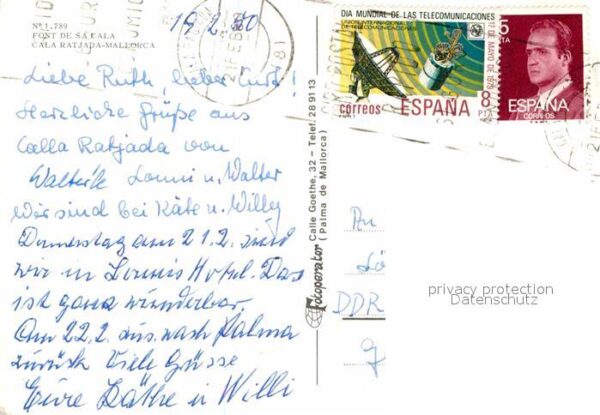 19.2.80
Nº 1.789
FONT DE SA CALA
CALA RATJADA-MALLORCA
Liebe Ruth, lieber Curt!
Herzliche Grüße aus
Calla Ratjada von
Lonni u. Walter
Wir sind bei Käte u. Willy
Donnerstag am 21.2. sind
wir in Lonnis Hotel. Das
ist ganz wunderbar.
Am 22.2. aus nach Palma
zurück Viele Grüsse
Eure Käthe u Willi
Fotoperator
Calle Goethe, 32 - Telef. 28 91 13
(Palma de Mallorca)
DIA MUNDIAL DE LAS TELECOMUNICACIONES
UNION INTERNACIONAL
DE TELECOMUNICACIONES
17 DE MAYO DE
correos
ESPAÑA
8 PTA
6 PTA
ESPAÑA
CORREOS
An
DDR
privacy protection
Datenschutz